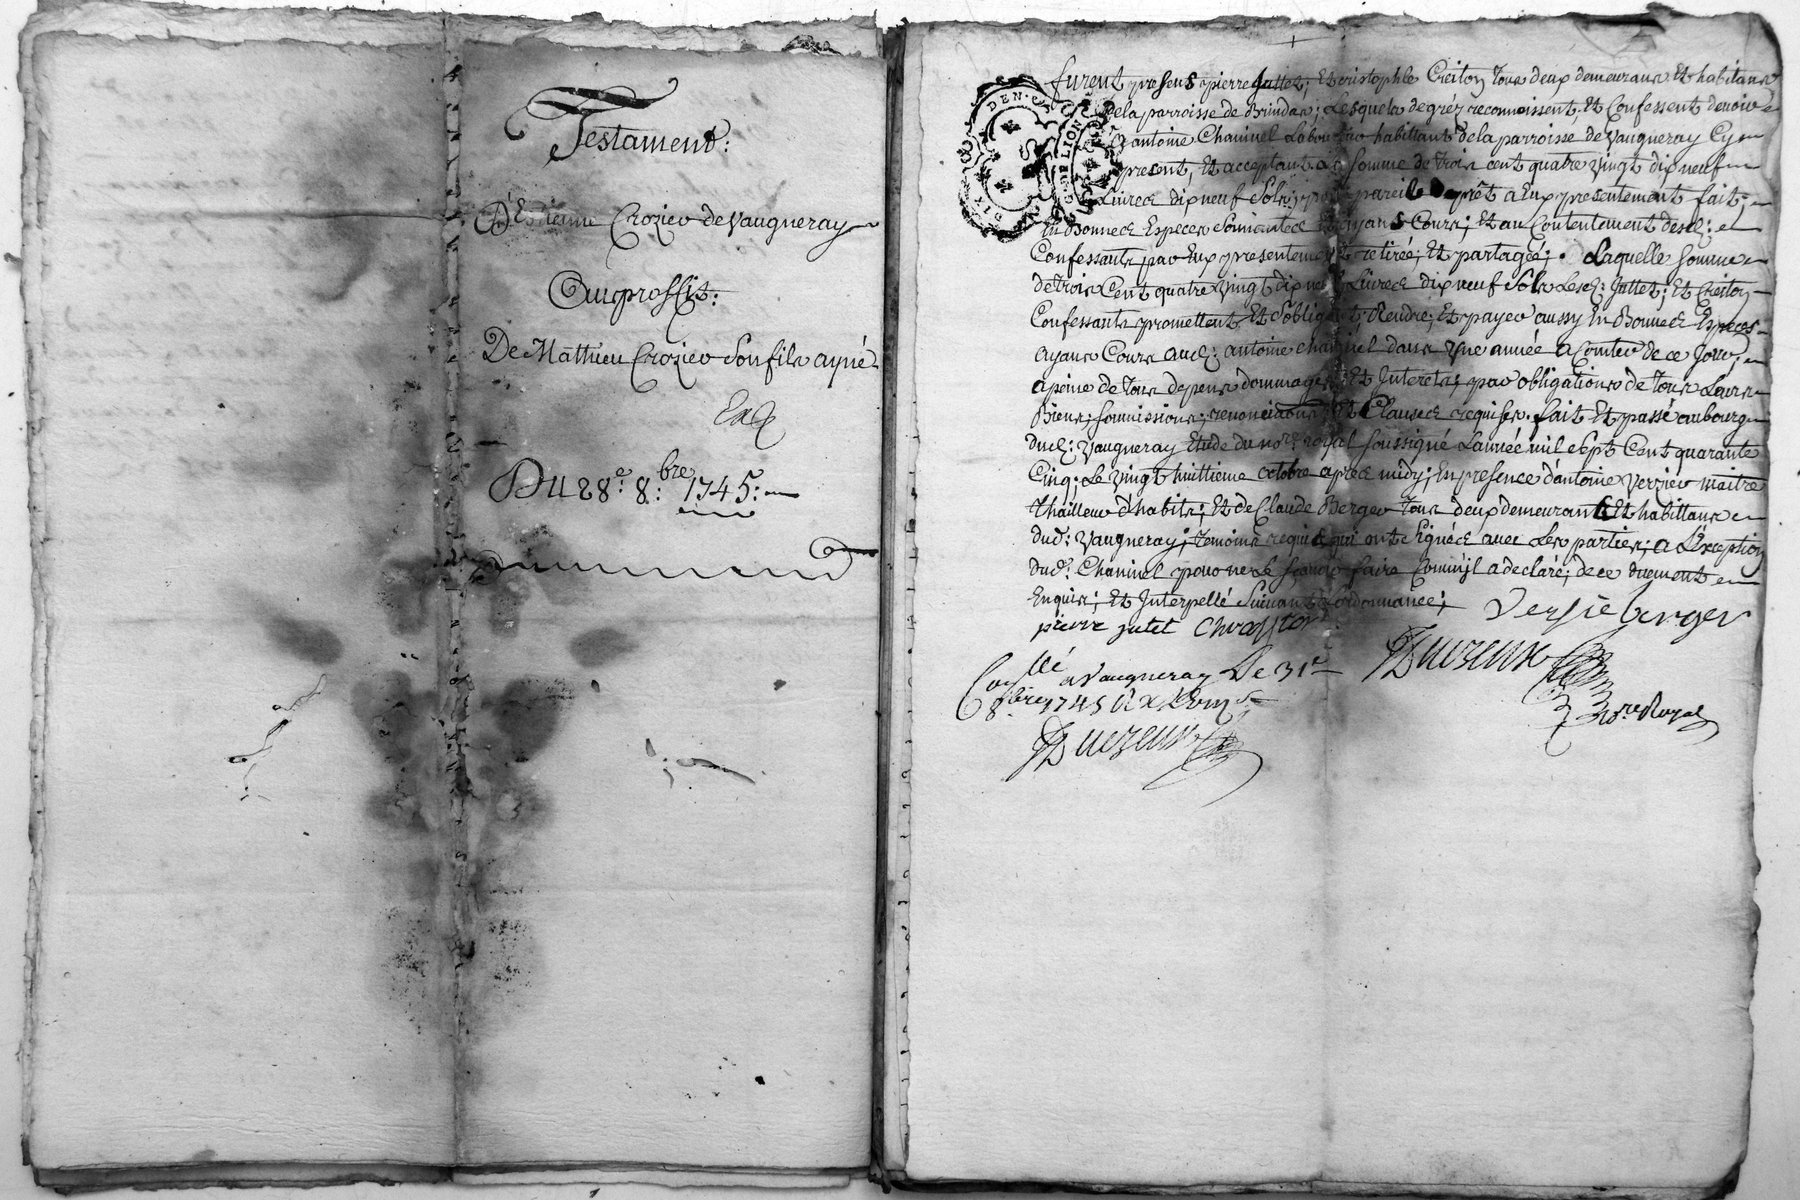 Testament:
D'Estienne Crozier de Vaugneray
Au proffit:
De Matthieu Crozier son fils ayné
Du 28e. 8.bre 1745:
DEN.
DIX
G. DE LION
furent presens pierre Juttet; Et cristophle Creiton tous deux demeurans Et habitans
dela parroisse de Brindas; Lesquels de gréz reconnoissent, Et Confessent devoir
A antoine Chaninel Laboureur habittant dela parroisse de Vaugneray Cy
present, Et acceptant La somme de trois cent quatre vingt dix neuf
Livres dix neuf Sols; pour pareille prêt a Eux presentement fait;
En Bonnes Especes Sonnantes Et ayans Cours; Et au Contentement desd:
Confessants par Eux presentement retirée; Et partagée; Laquelle somme
de trois Cent quatre vingt dix neuf Livres dix neuf Sols Lesd: Juttet; Et Creiton
Confessants promettent Et S'obligent; Rendre; Et payer aussy En Bonnes Especes
ayans Cours aud: antoine chaninel dans Une année a Comter de ce jour;
a peine de tous depens dommages; Et Interets; par obligations de tous Leurs
Biens; soumissions; renonciations; Et Clauses requises. fait Et passé au bourg
dud: Vaugneray Etude du nore. royal soussigné L'année mil Sept Cent quarante
Cinq; Le vingt huittieme octobre aprés midy; En presence d'antoine Verzier maitre
thailleur d'habits; Et de Claude Berger tous deux demeurants Et habittans
dud: Vaugneray; temoins requis qui ont Signés avec Les parties; a L'exception
dud: Chaninel pour ne Le scavoir faire Comm'jl a declaré; de ce duement
Enquis; Et Interpellé Suivant L'ordonnance;
Versie berger
pierre jutet
Conllé a Vaugneray Le 31e
8.bre 1745
nore. Royal